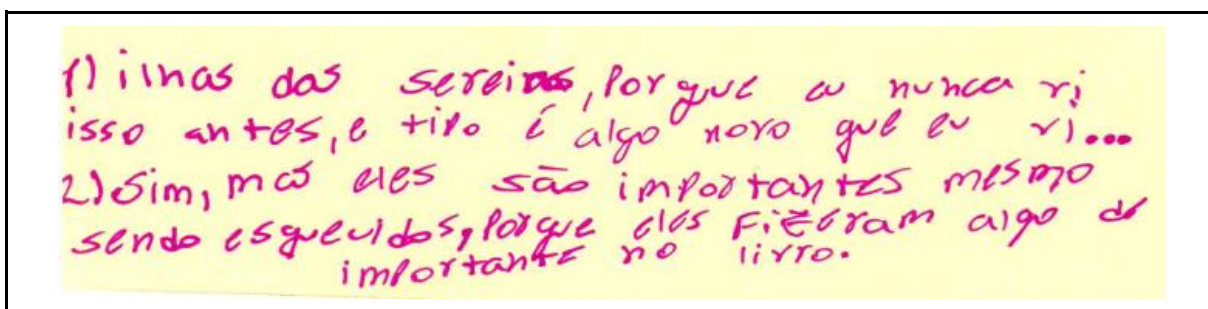 1) ilhas das sereias, Porque eu nunca vi
isso antes, e tipo é algo novo que eu vi...
2) Sim, mas eles são importantes mesmo
sendo esquecidos, Porque eles Fizeram algo de
importante no livro.